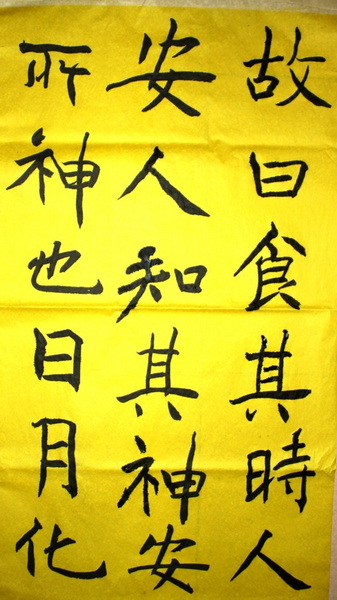 故曰食其時人
安人知其神安
所神也日月化